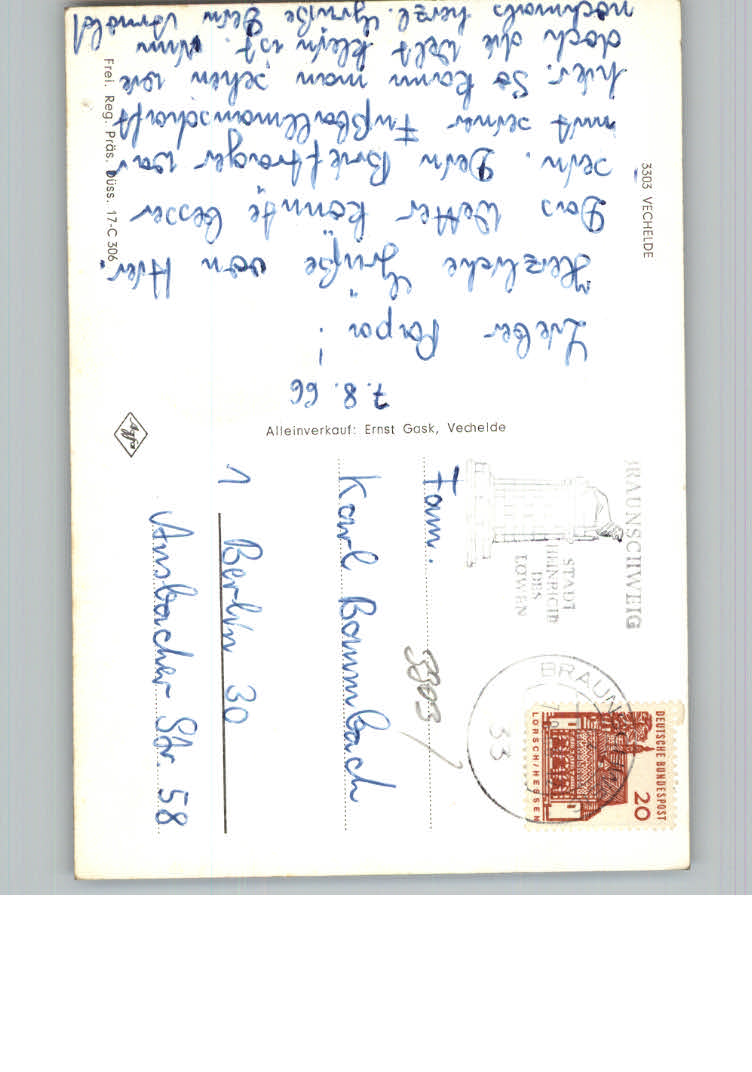 7.8.66
Lieber Papa!
Herzliche Grüße von Hier.
Das Wetter könnte besser
sein. Dein Briefträger war
mit seiner Fußballmanschaft
hier. So kann man sehen wie
doch die Welt klein ist. Nun
nochmals herzl. Grüße Dein Arnold
3303 VECHELDE
Frei. Reg. Präs. Düss. 17-C 306
Agfa
Alleinverkauf: Ernst Gask, Vechelde
BRAUNSCHWEIG
STADT
HEINRICHS
DES
LÖWEN
BRAUNSCHWEIG
33
DEUTSCHE BUNDESPOST
20
LORSCH/HESSEN
Fam.
3303
Karl Baumbach
1 Berlin 30
Ansbacher Str. 58